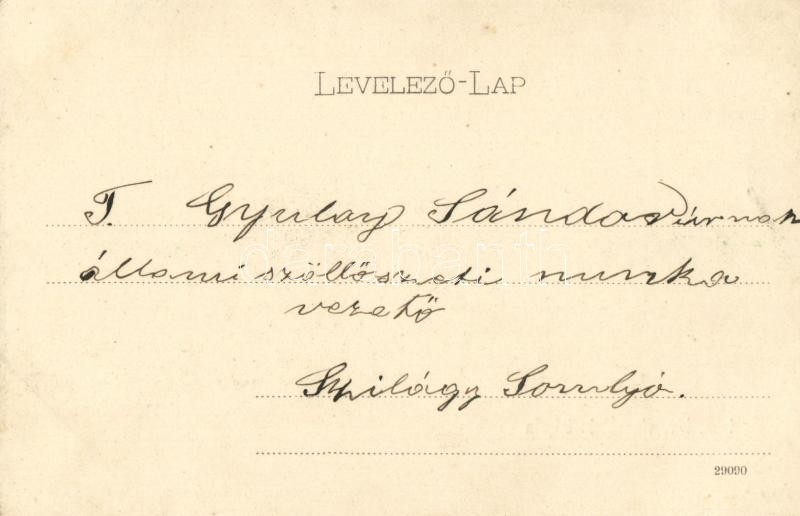 LEVELEZŐ-LAP
T. Gyulay Sándor úrnak
állami szöllőszeti munka
vezető
Szilágy Somlyó.
29090